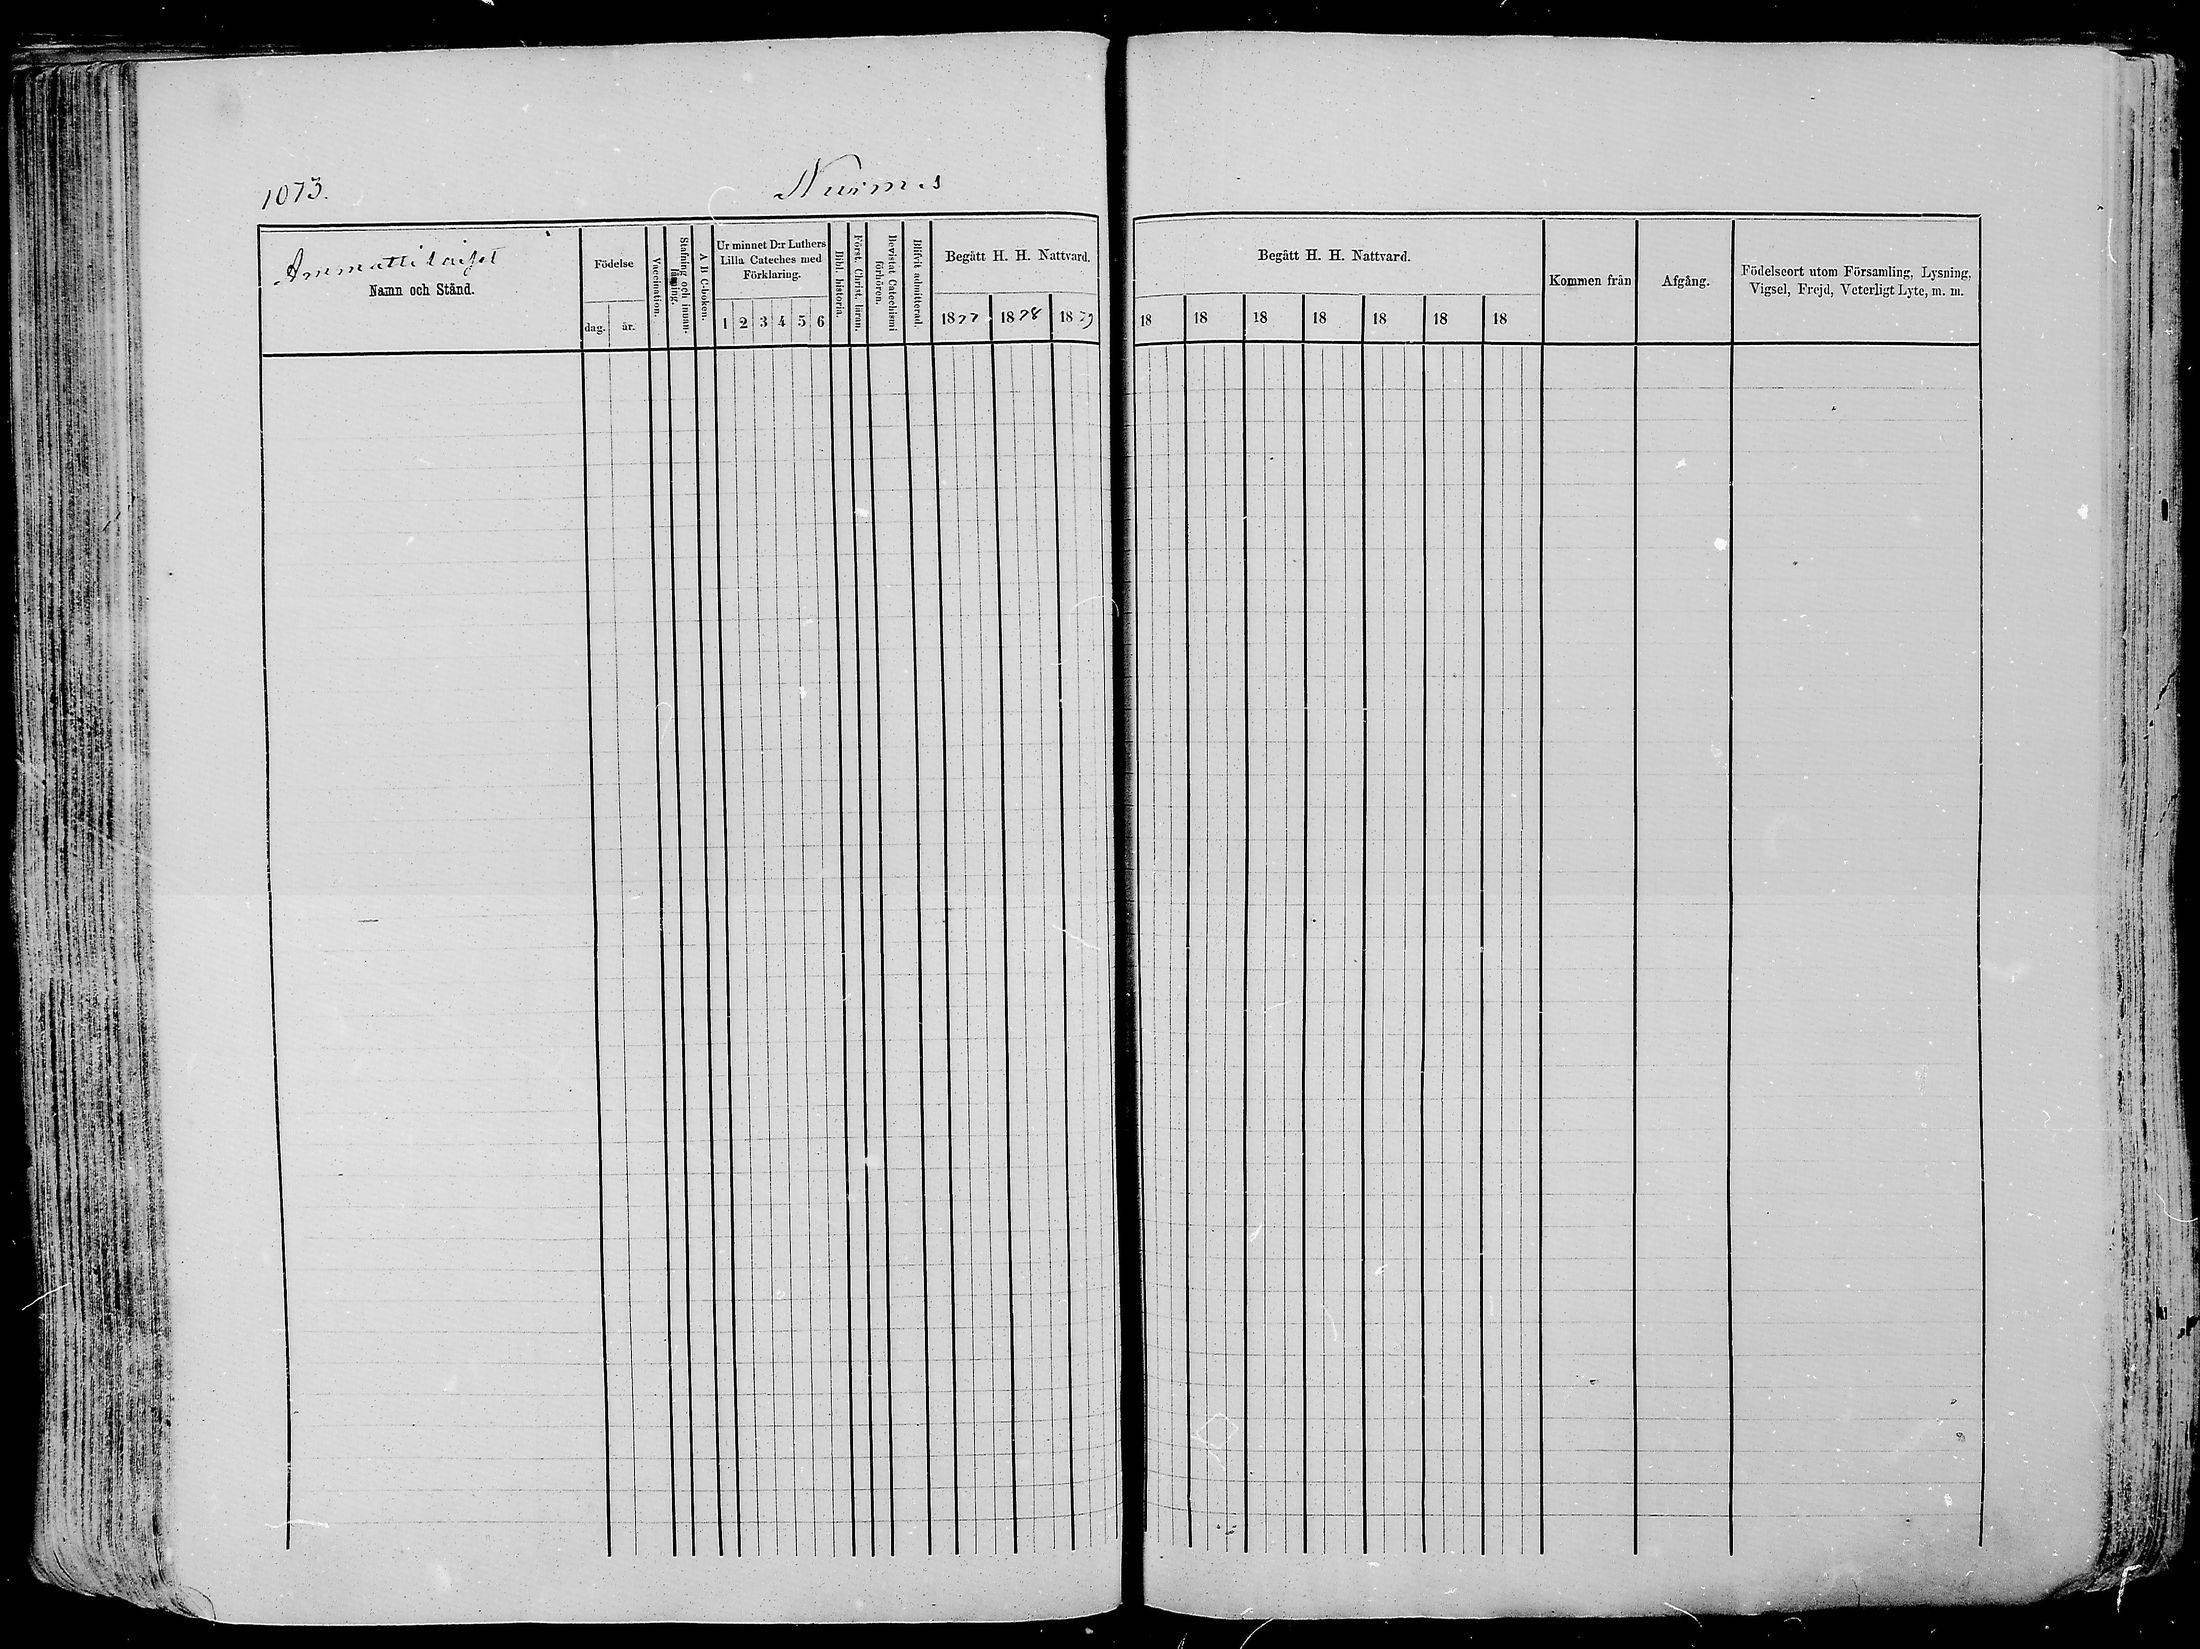 1073.
Nurmes
Ammattilaiset
Namn och Stånd.
Födelse
dag.
år.
Vaccination.
Stafning och innan-
läsning.
A B C-boken.
Ur minnet D:r Luthers
Lilla Cateches med
Förklaring.
1 2 3 4 5 6
Bibl. historia.
Först. Christ. läran.
Bevistat Catechismi
förhören.
Blifvit admitterad.
Begått H. H. Nattvard.
1877 1878 1879
Begått H. H. Nattvard.
18 18 18 18 18 18 18
Kommen från
Afgång.
Födelseort utom Församling, Lysning,
Vigsel, Frejd, Veterligt Lyte, m. m.